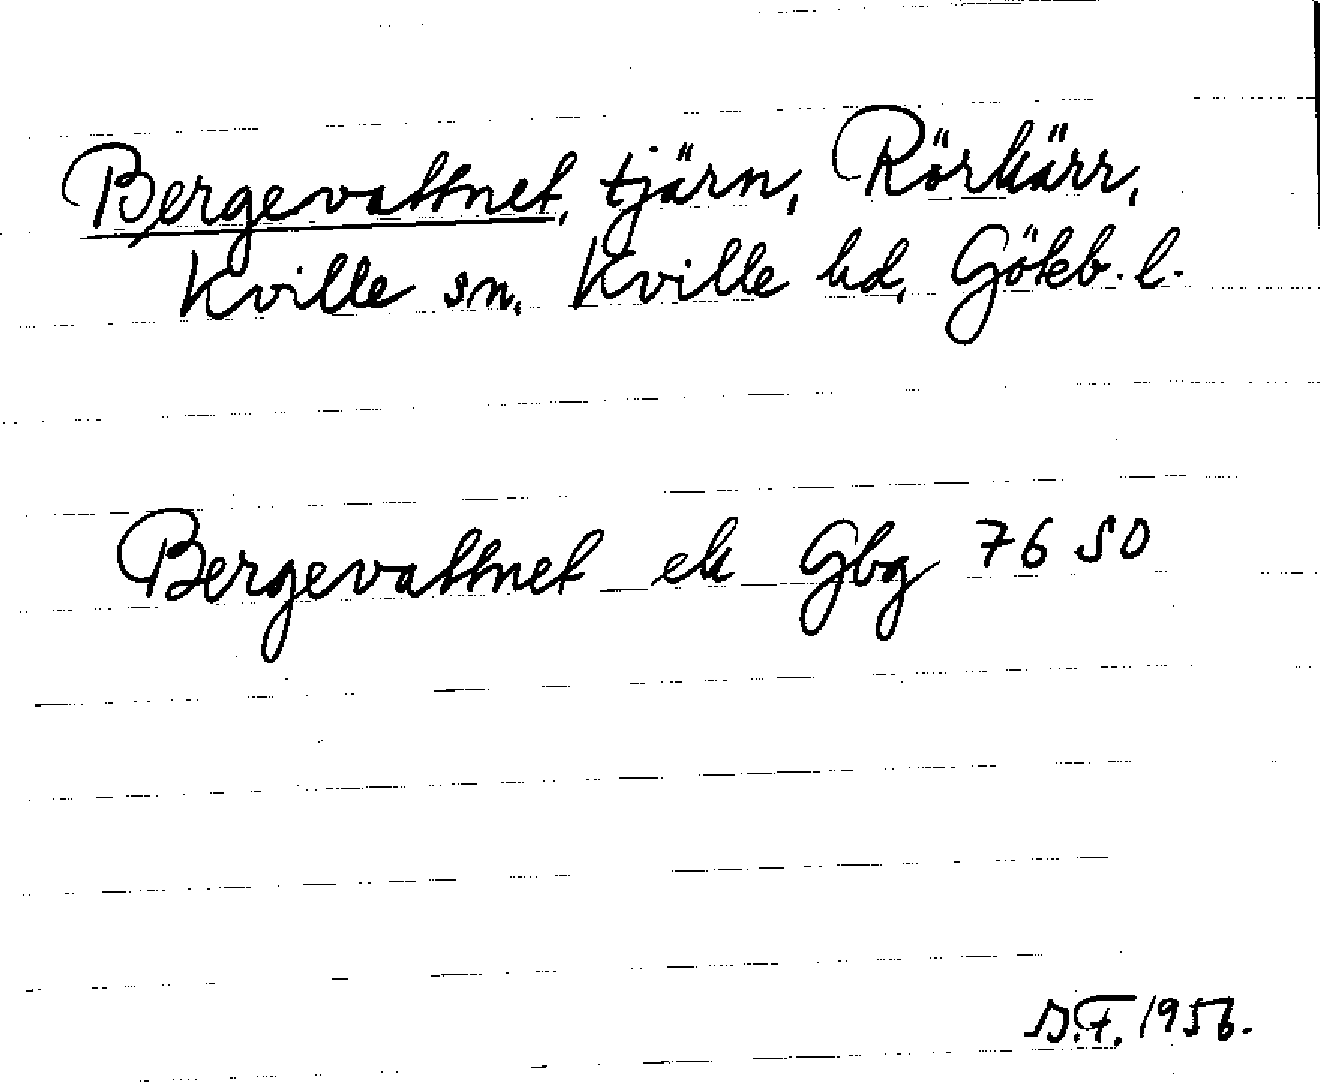 Bergevattnet, tjärn, Rörkärr,
Kville sn, Kville hd, Gökb. l.
Bergevattnet ek Gbg 7650
S.F. 1956.